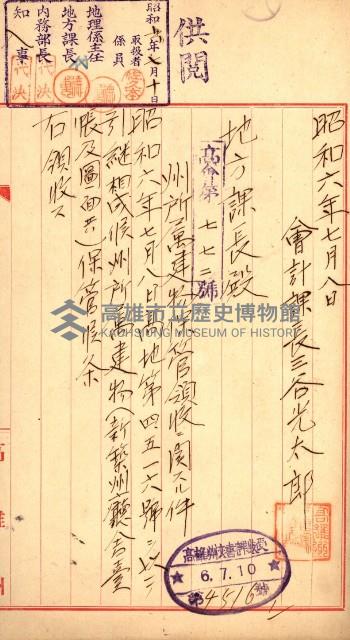 供閲
昭和六年七月十日
取扱者
係員
地理係主任
地方課長
内務部長
知事
代決
代決
昭和六年七月八日
會計課長三谷光太郎
高會第七七二號
地方課長殿
州所屬建物保管領收ニ関スル件
昭和六年七月八日高地第四五一六號ニ以テ
引継相成候州所属建物(新築州廳舎臺
帳及圖面共)保管候条
右領收ス
高雄州文書課收受
6.7.10
第4516號
高雄市立歷史博物館
KAOHSIUNG MUSEUM OF HISTORY
高雄州